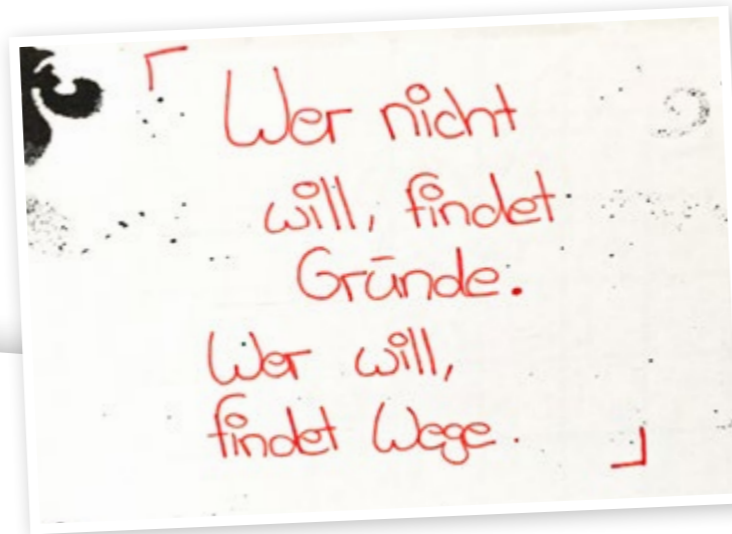 Wer nicht
will, findet
Gründe.
Wer will,
findet Wege.